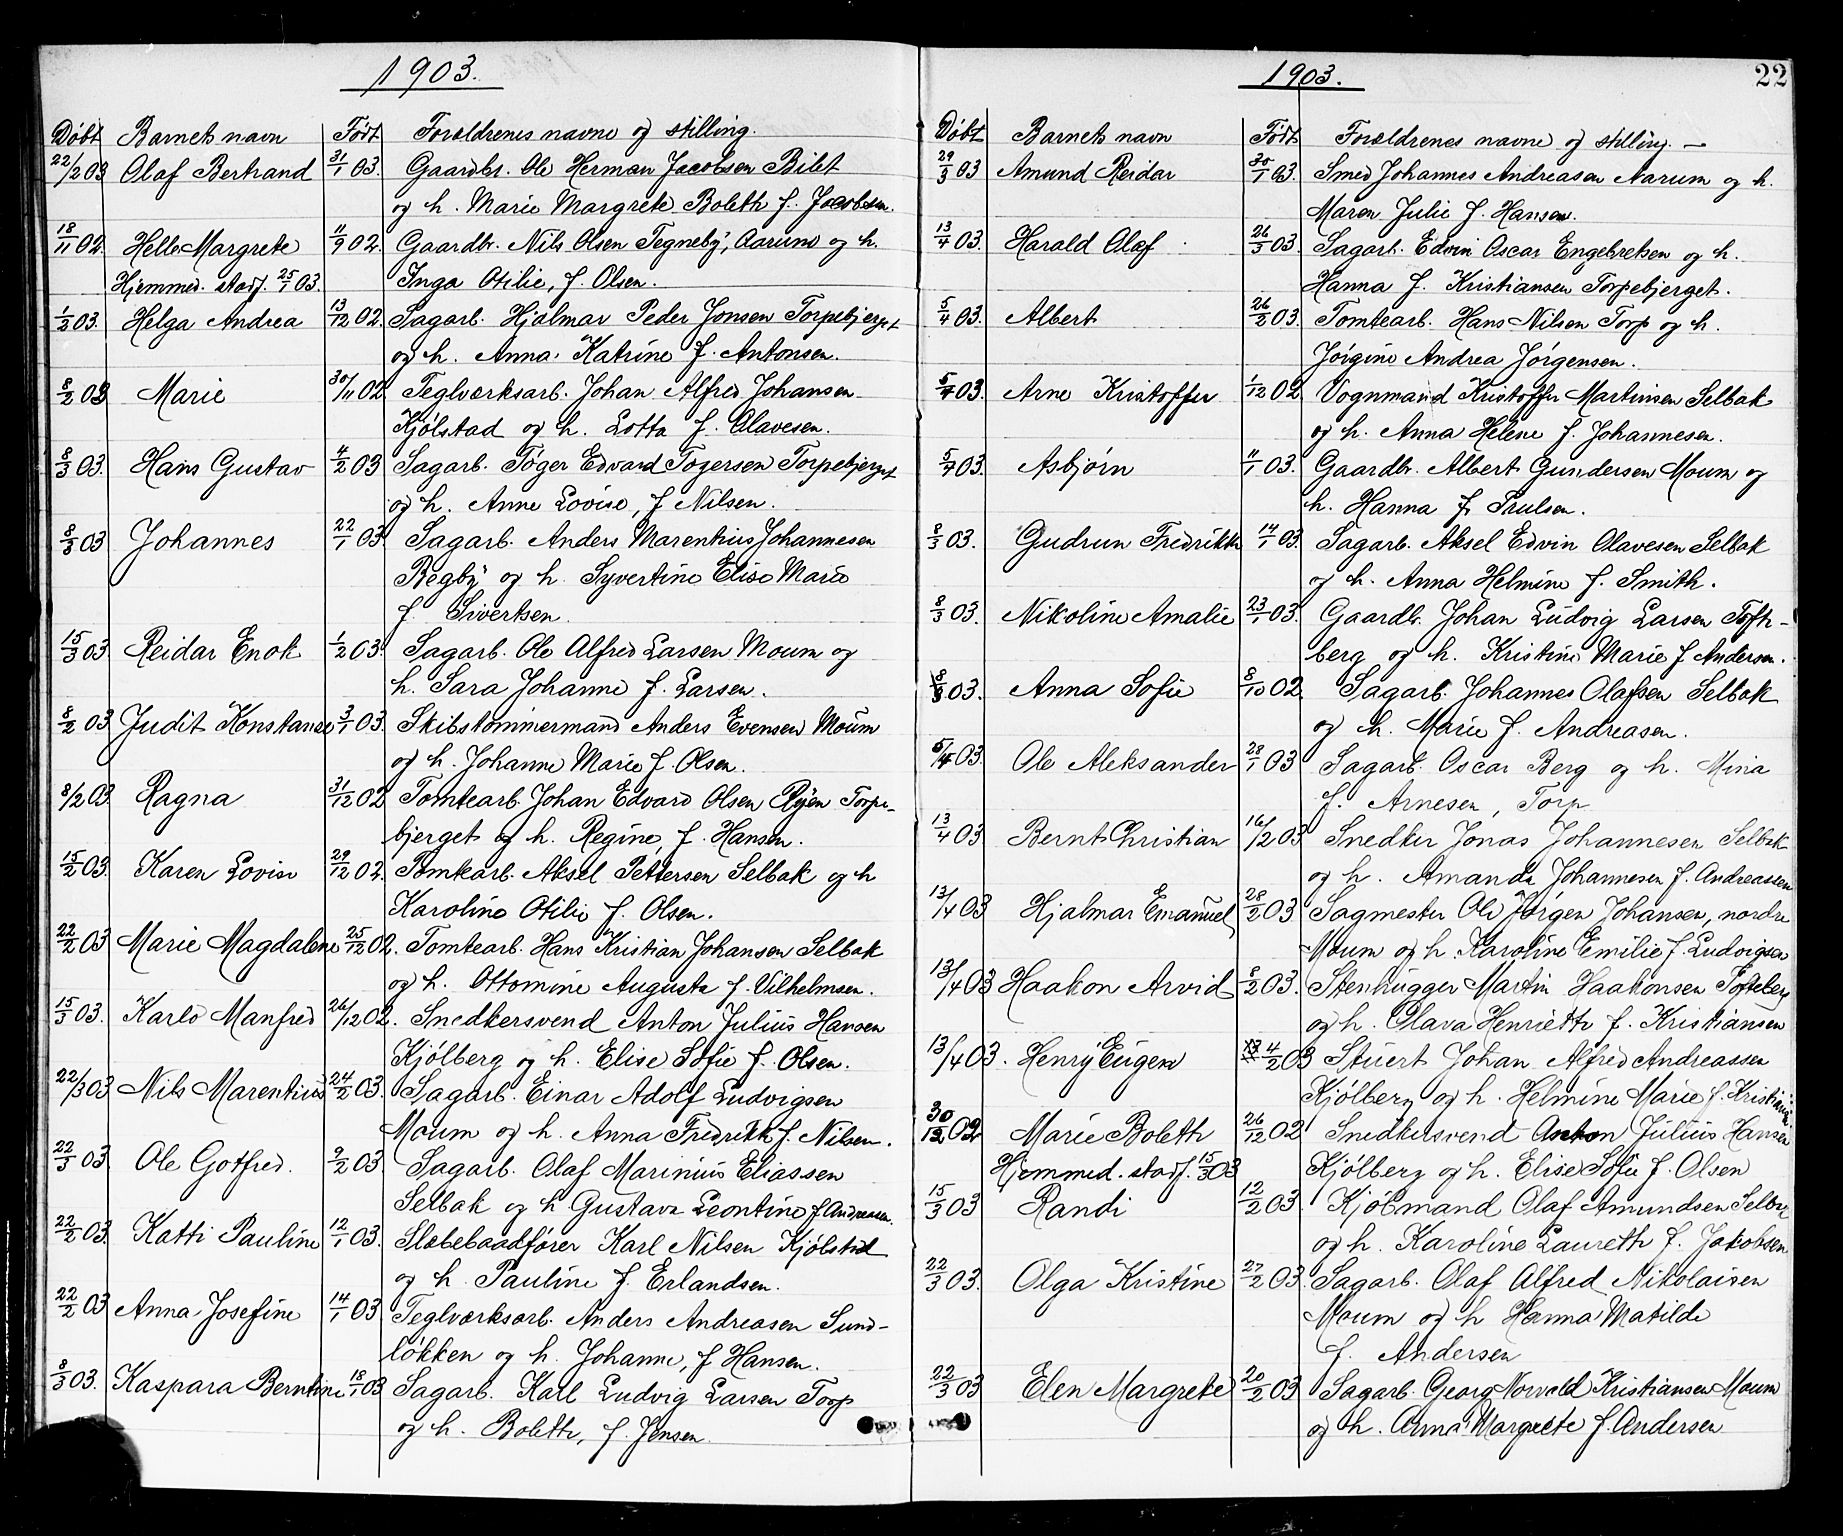 1903.
Døbt Barnets navn Født Forældrenes navne og stilling.
22/2 03 Olaf Bertrand 31/1 03. Gaardbr. Ole Herman Jacobsen Bilet
og h. Marie Margrete Boleth f. Jacobsen.
18/11 02. Helle Margrete 11/9 02. Gaardbr. Nils Olsen Tegneby, Aarum og h.
Hjemmed. stadf. 25/1 03. Inga Otilie, f. Olsen.
1/2 03. Helga Andrea 13/12 02. Sagarb. Hjalmar Peder Jonsen Torpebjerget
og h. Anna Katrine f. Antonsen.
8/2 03 Marie 30/11 02. Teglværksarb. Johan Alfred Johansen
Kjølstad og h. Lotta f. Olavesen.
8/3 03. Hans Gustav 4/2 03 Sagarb. Tøger Edvard Tøgersen Torpebjerget
og h. Anne Lovise, f Nilsen.
8/3 03 Johannes 22/1 03. Sagarb. Anders Marentius Johannesen
Begby og h. Syvertine Elise Marie
f. Sivertsen.
15/3 03. Reidar Enok 1/2 03. Sagarb. Ole Alfred Larsen Moum og
h. Sara Johanne f. Larsen.
8/2 03 Judit Konstanse 3/1 03. Skibstømmermand Anders Evensen Moum
og h. Johanne Marie f. Olsen.
8/2 03 Ragna 31/12 02 Tomtearb. Johan Edvard Olsen Ryen Torpe-
bjerget og h. Regine, f. Hansen.
15/2 03. Karen Lovise 29/12 02. Tomtearb. Aksel Pettersen Selbak og h
Karoline Otilie f. Olsen.
22/2 03 Marie Magdalene 25/12 02. Tomtearb. Hans Kristian Johansen Selbak
og h. Ottomine Augusta f. Vilhelmsen.
15/3 03. Karlo Manfred 26/12 02. Snedkersvend Anton Julius Hansen
Kjølberg og h. Elise Sofie f. Olsen.
22/3 03 Nils Marentius 24/2 03. Sagarb. Einar Adolf Ludvigsen
Moum og h. Anna Fredrikke f. Nilsen.
22/3 03. Ole Gotfred. 9/2 03. Sagarb. Olaf Marinius Eliassen
Selbak og h Gustava Leontine f Andreasen.
22/2 03. Katti Pauline 12/1 03. Slæbebaadfører Karl Nilsen Kjølstad
og h. Pauline f. Erlandsen.
22/2 03 Anna Josefine 14/1 03. Teglværksarb. Anders Andreasen Sund-
løkken og h. Johanne, f Hansen.
8/3 03. Kaspara Berntine 18/1 03 Sagarb. Karl Ludvig Larsen Torp
og h. Bolette, f. Jensen.
1903.
22
Døbt Barnets navn Født Forældrenes navne og stilling. —
29/3 03 Amund Reidar 30/1 03. Smed Johannes Andreasen Aarum og h.
Maren Julie f. Hansen.
13/4 03. Harald Olaf 26/3 03. Sagarb. Edvin Oscar Engebretsen og h.
Hanna f. Kristiansen Torpebjerget.
5/4 03. Albert 26/2 03. Tomtearb. Hans Nilsen Torp og h.
Jørgine Andrea Jørgensen.
5/4 03. Arne Kristoffer 1/12 02 Vognmand Kristoffer Martinsen Selbak
og h. Anna Helene f. Johannesen.
5/4 03. Asbjørn 11/1 03. Gaardbr. Albert Gundersen Moum og
h. Hanna f. Trulsen.
8/3 03. Gudrun Fredrikke 14/1 03. Sagarb. Aksel Edvin Olavesen Selbak
og h. Anna Helmine f. Smith.
8/3 03. Nikoline Amalie 23/1 03. Gaardbr. Johan Ludvig Larsen Tofte-
berg og h. Kristine Marie f Andersen.
8/3 03. Anna Sofie 8/10 02. Sagarb. Johannes Olafsen Selbak
og h. Marie f. Andreasen.
5/4 03. Ole Aleksander 28/1 03 Sagarb. Oscar Berg og h. Mina
f. Arnesen, Torp
13/4 03. Bernt Christian 16/2 03 Snedker Jonas Johannesen Selbak
og h. Amanda Johannesen f. Andreassen
13/4 03 Hjalmar Emanuel 28/2 03 Sagmester Ole Jørgen Johansen, nordre
Moum og h. Karoline Emilie f. Ludvigsen
13/4 03 Haakon Arvid 8/2 03. Stenhugger Martin Haakonsen Tofteberg
og h. Olava Henriette f. Kristiansen
13/4 03. Henry Eugen 4/2 03 Stuert Johan Alfred Andreassen
Kjølberg og h. Helmine Marie f. Kristiansen
30/12 02 Marie Boleth 26/12 02 Snedkersvend Anton Julius Hansen
Hjemmed. stadf. 15/3 03 Kjølberg og h. Elise Sofie f. Olsen
15/3 03 Randi 12/2 03. Kjøbmand Olaf Amundsen Selbak
og h. Karoline Laurette f. Jakobsen
22/3 03. Olga Kristine 27/2 03. Sagarb. Olaf Alfred Nikolaisen
Moum og h Hanna Matilde
f. Andersen
22/3 03 Elen Margrete 20/2 03. Sagarb. Georg Norvald Kristiansen Moum
og h. Anna Margrete f. Andersen